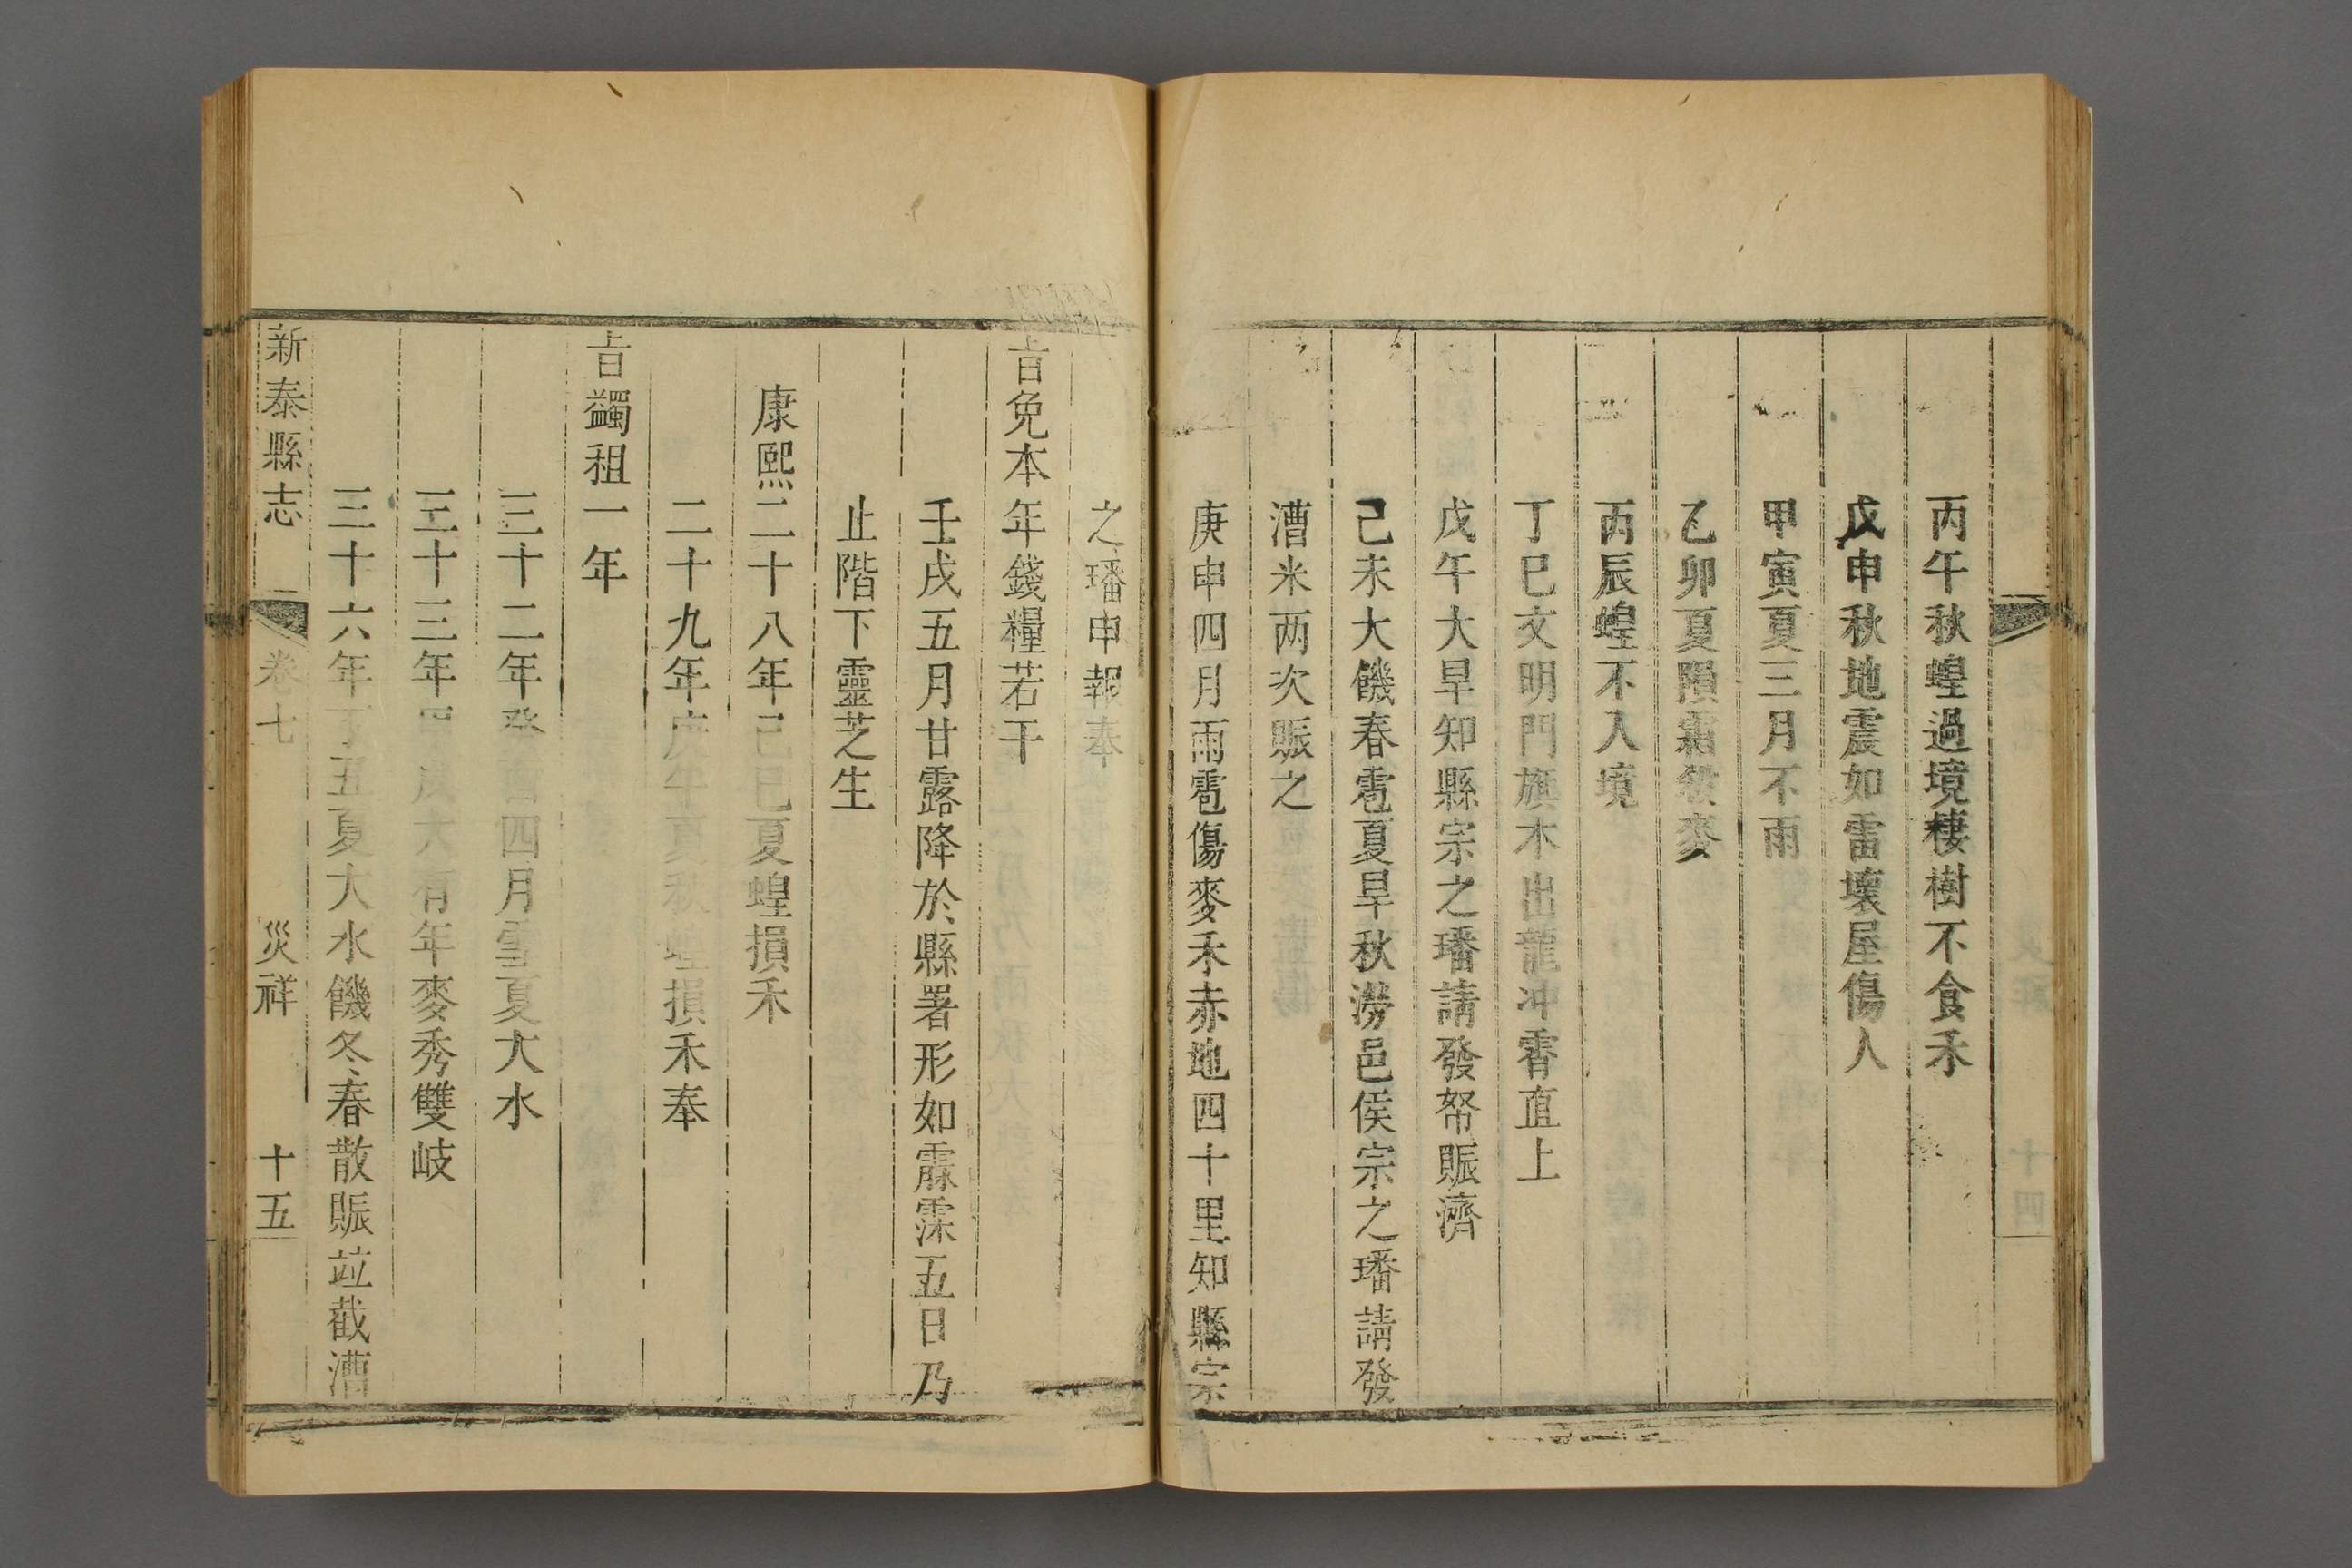 丙午秋蝗過境棲樹不食禾
戊申秋地震如雷壞屋傷人
甲寅夏三月不雨
乙卯夏隕霜殺麥
丙辰蝗不入境
丁巳文明門旗木出龍冲霄直上
戊午大旱知縣宗之璠請發帑賑濟
己未大饑春雹夏旱秋澇邑侯宗之璠請發
漕米两次賑之
庚申四月雨雹傷麥禾赤地四十里知縣宗
之璠申報奉
旨免本年錢糧若干
壬戌五月甘露降於縣署形如霡霂五日乃
止階下靈芝生
康熙二十八年己巳夏蝗損禾
二十九年庚午夏秋蝗損禾奉
旨蠲租一年
三十二年癸酉四月雪夏大水
三十三年甲戌大有年麥秀雙岐
三十六年丁丑夏大水饑冬春散賑竝截漕
新泰縣志 卷七 災祥 十五